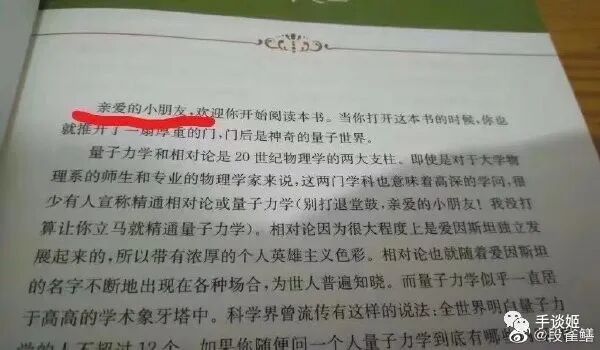 亲爱的小朋友,欢迎你开始阅读本书。当你打开这本书的时候,你也
就推开了一扇厚重的门,门后是神奇的量子世界。
量子力学和相对论是 20 世纪物理学的两大支柱。即使是对于大学物
理系的师生和专业的物理学家来说,这两门学科也意味着高深的学问,很
少有人宣称精通相对论或量子力学(别打退堂鼓,亲爱的小朋友!我没打
算让你立马就精通量子力学)。相对论因为很大程度上是爱因斯坦独立发
展起来的,所以带有浓厚的个人英雄主义色彩。相对论也就随着爱因斯坦
的名字不断地出现在各种场合,为世人普遍知晓。而量子力学似乎一直居
于高高的学术象牙塔中。科学界曾流传有这样的说法:全世界明白量子力
学的人不超过 12 个。如果你随便问一个人量子力学到底有哪些
手谈姬
@段雀鳝